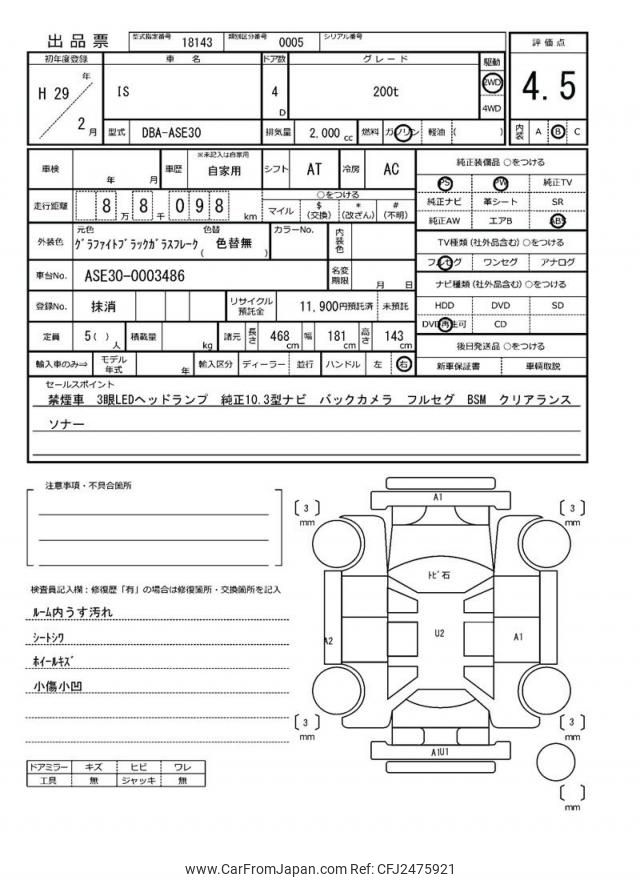 出品票
型式指定番号 18143 類別区分番号 0005 シリアル番号
評価点
4.5
初年度登録 車名 ドア数 グレード 駆動
H 29 年 2 月
IS
4 D
200t
2WD
4WD
型式 DBA-ASE30 排気量 2,000 cc 燃料 ガソリン 軽油 ( )
内装 A B C
車検 年 月 車歴 ※未記入は自家用 自家用 シフト AT 冷房 AC
走行距離 8 万 8 千 0 9 8 km
○をつける
マイル $ (交換) * (改ざん) # (不明)
外装色 元色 色替
グラファイトブラックガラスフレーク ( 色替無 )
カラーNo. 内装色
車台No. ASE30-0003486 名変期限 月 日
登録No. 抹消 リサイクル預託金 11,900円預託済 未預託
定員 5( ) 人 積載量 kg 諸元 長さ 468 cm 幅 181 cm 高さ 143 cm
輸入車のみ⇒ モデル年式 年 輸入区分 ディーラー 並行 ハンドル 左 右
純正装備品 ○をつける
PS PW 純正TV
純正ナビ 革シート SR
純正AW エアB ABS
TV種類 (社外品含む) ○をつける
フルセグ ワンセグ アナログ
ナビ種類 (社外品含む) ○をつける
HDD DVD SD
DVD再生可 CD
後日発送品 ○をつける
新車保証書 車輌取説
セールスポイント
禁煙車 3眼LEDヘッドランプ 純正10.3型ナビ バックカメラ フルセグ BSM クリアランス
ソナー
注意事項・不具合箇所
検査員記入欄：修復歴「有」の場合は修復箇所・交換箇所を記入
ルーム内うす汚れ
シートシワ
ホイールキズ
小傷小凹
ドアミラー キズ ヒビ ワレ
工具 無 ジャッキ 無
A1
[ 3 ] mm
[ 3 ] mm
トビ石
A2
U2
A1
[ 3 ] mm
[ 3 ] mm
A1U1
[ ] mm
www.CarFromJapan.com Ref: CFJ2475921